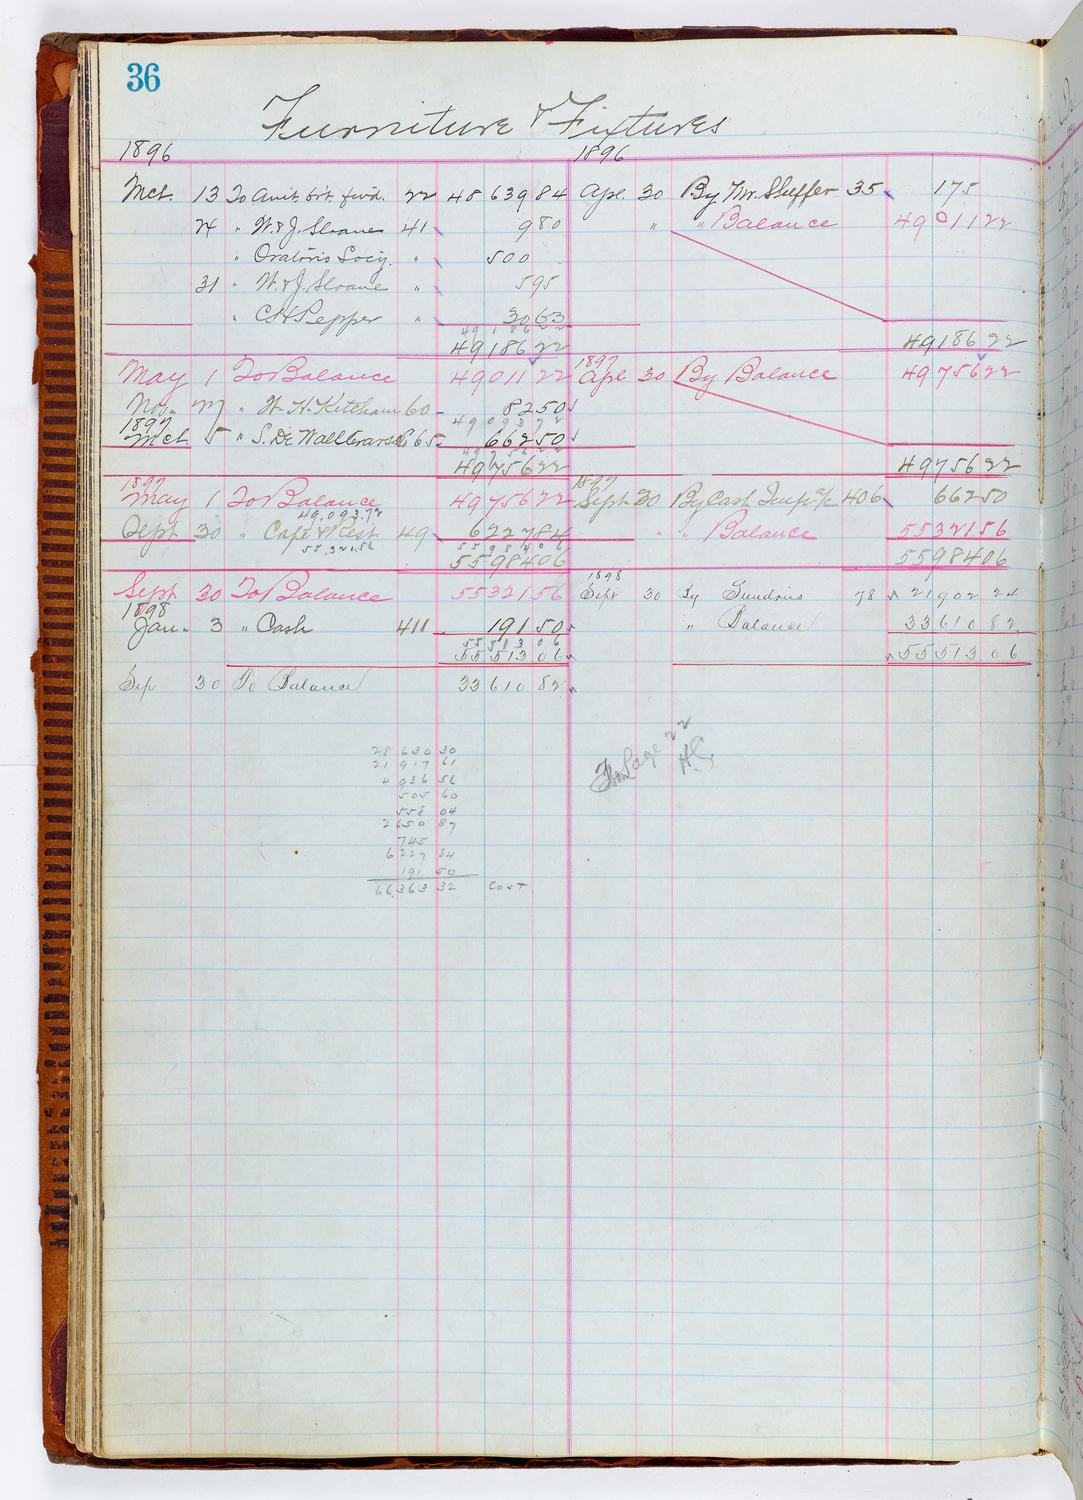 36
Furniture & Fixtures
1896 1896
Mch. 13 To Amt. brt. fwd. 22 48 639 84 Apl. 30 By Mr. Sheffer 35 175
24 " W. & J. Sloane 41 9 80 " " Balance 49 011 22
" Oratorio Socy. " 500
31 " W. & J. Sloane " 5 95
" C H Pepper " 30 63
49 186 22
49186 22 49186 22
May 1 To Balance 49011 22 1897 Apl 30 By Balance 49756 22
Nov. " W. H. Ketcham 60 82 50
1897 49 093 72
Mch. 5 " S. De 665 662 50
49 756 22
49756 22 49756 22
1897 1897
May 1 To Balance 49756 22 Sept 30 By Cash Imp a/c 406 662 50
49,093.72
Sept 30 " Cafe & Rest 49 6227 84 " " Balance 55321 56
55,321.56 55 984 06
55984 06 55984 06
Sept 30 To Balance 55321 56 1898 Sept 30 By Sundries 78 21902 24
1898
Jan. 3 " Cash 411 191 50 " Balance 33610 82
55 513 06
55513 06 55513 06
Sep 30 To Balance 33610 82
28 630 30
21 917 61
4 936 56
505 60
558 04
2 650 87
745
6 227 84
191 50
66,363 32 Cost.
From Page 22